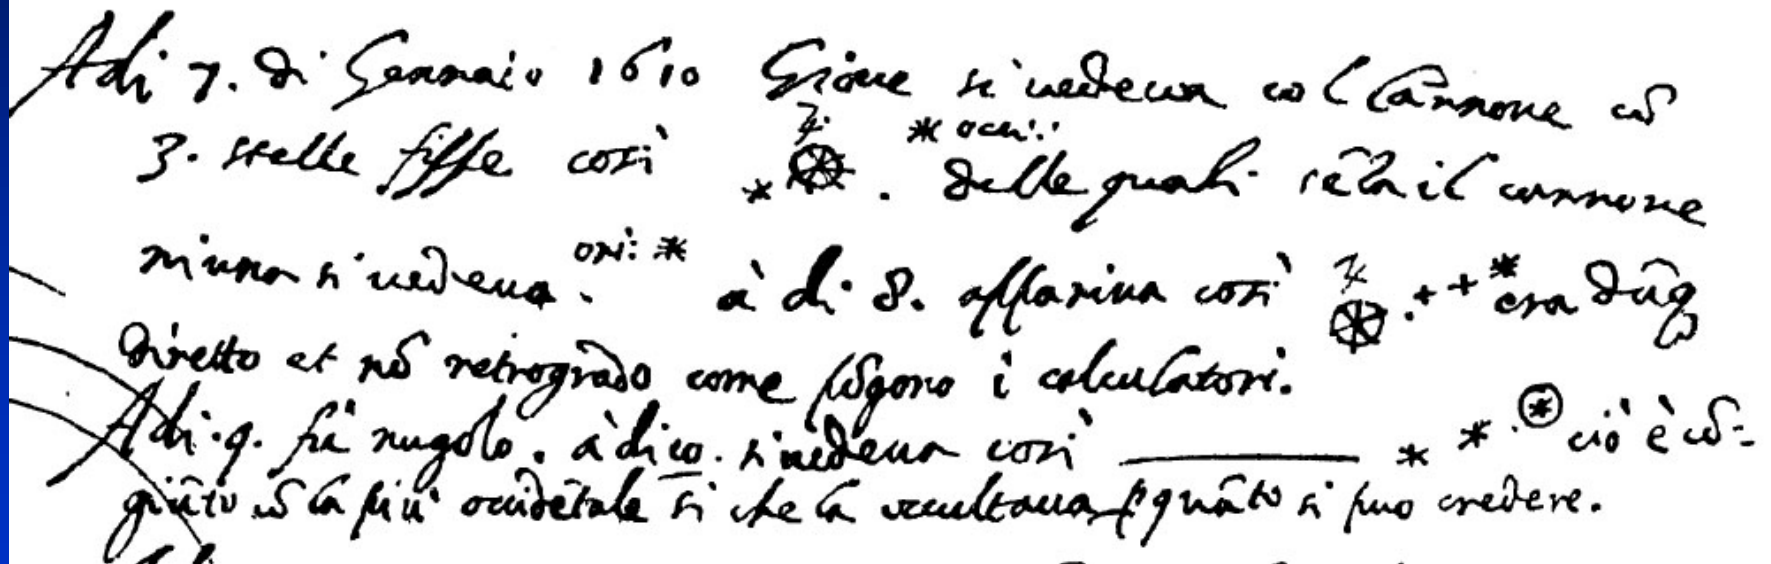 Adi 7. di Gennaio 1610 Giove si vedeva col Cannone cõ
3. stelle fisse così ♃ * occ: delle quali sẽza il cannone
niuna si vedeva. ori: * à di 8. appariva così ♃ era dũq
diretto et nõ retrogrado come põgono i calculatori.
Adi 9. fù nugolo. à di 10. si vedeva così ——— * * ciò è cõ-
giũto cõ la più occidẽtale sì che la occultava p quãto si può credere.